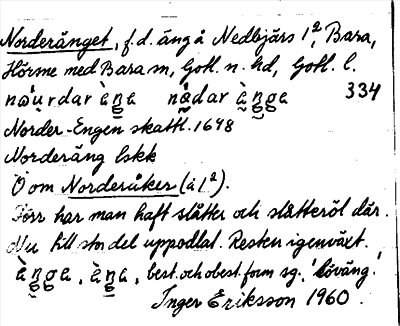 Norderänget, f.d. äng å Nedbjärs 1², Bara,
Hörsne med Bara sn, Gotl. n. hd, Gotl. l.
334
Norder-Engen skattl. 1648
Norderäng lskk
Ö om Norderåker (å 1²).
Förr har man haft slåtter och slåtteröl där.
Nu till stn del uppodlat. Resten igenväxt.
best. och obest. form sg. 'löväng'.
Inger Eriksson 1960.